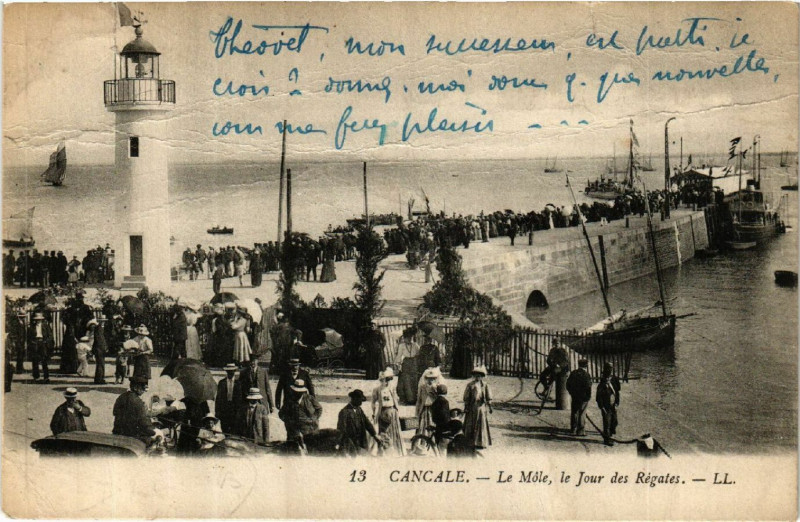 Chesvet, mon successeur, est parti. je
crois à donnez-moi donc q. ques nouvelles,
com me ferez plaisir - - -
13 CANCALE. — Le Môle, le Jour des Régates. — LL.